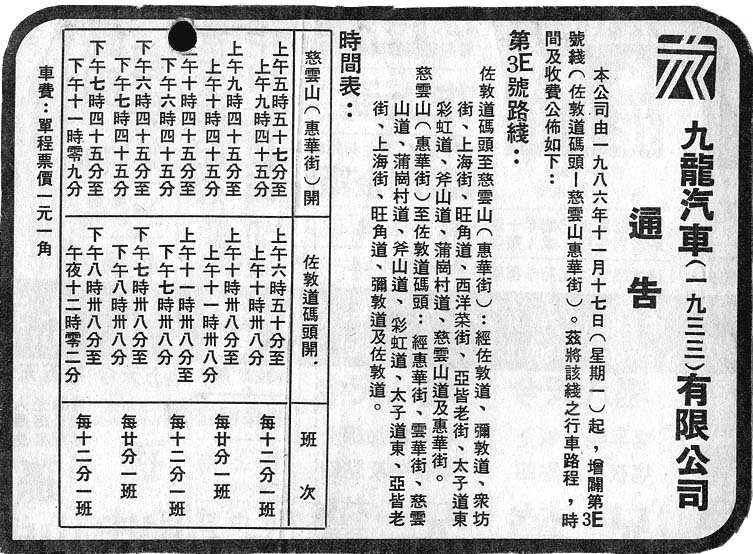 九龍汽車(一九三三)有限公司
通告
本公司由一九八六年十一月十七日(星期一)起,增闢第3E
號綫(佐敦道碼頭-慈雲山惠華街)。茲將該綫之行車路程,時
間及收費公佈如下:
第3E號路綫:
佐敦道碼頭至慈雲山(惠華街):經佐敦道、彌敦道、眾坊
街、上海街、旺角道、西洋菜街、亞皆老街、太子道東
彩虹道、斧山道、蒲崗村道、慈雲山道及惠華街。
慈雲山(惠華街)至佐敦道碼頭:經惠華街、雲華街、慈雲
山道、蒲崗村道、斧山道、彩虹道、太子道東、亞皆老
街、上海街、旺角道、彌敦道及佐敦道。
時間表:
慈雲山(惠華街)開
佐敦道碼頭開.
班次
上午五時五十七分至
上午九時四十五分
上午六時五十分至
上午十時卅八分
每十二分一班
上午九時四十五分至
上午十時四十五分
上午十時卅八分至
上午十一時卅八分
每廿分一班
午十時四十五分至
下午六時四十五分
上午十一時卅八分至
下午七時卅八分
每十二分一班
下午六時四十五分至
下午七時四十五分
下午七時卅八分至
下午八時卅八分
每廿分一班
下午七時四十五分至
下午十一時零九分
下午八時卅八分至
午夜十二時零二分
每十二分一班
車費:單程票價一元一角